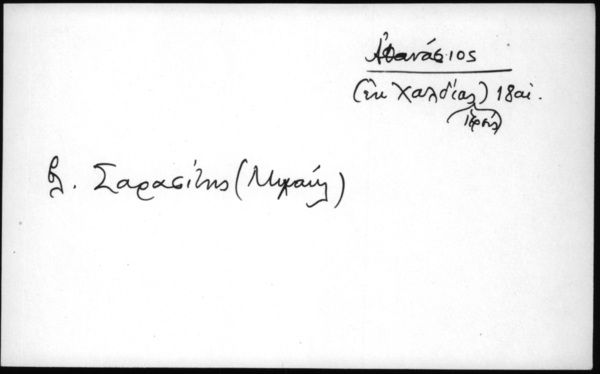 Ἀθανάσιος
(ἐκ Χαλδίας) 18 αἰ.
ἱερεύς
βλ. Σαρασίτης (Μιχαήλ)